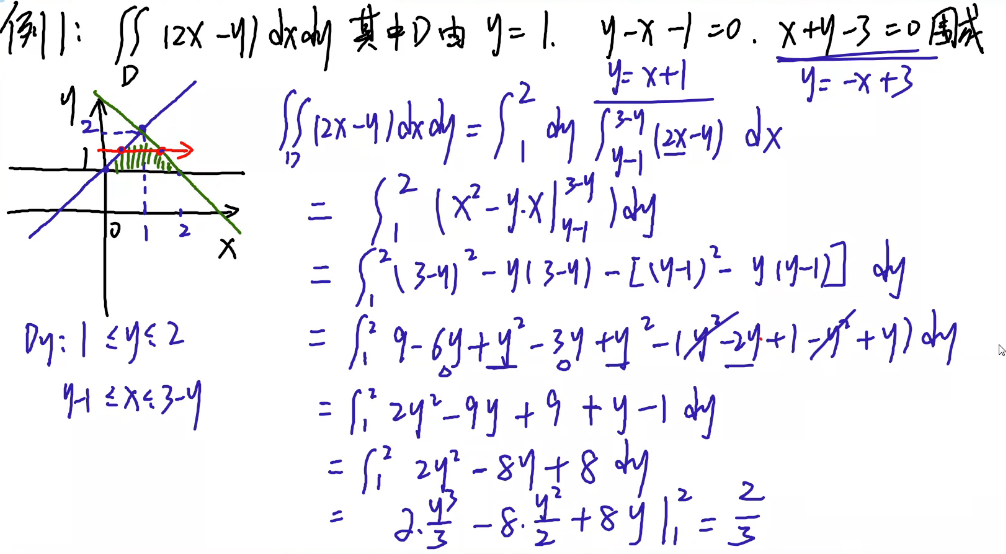 例1: ∬_D (2x-y) dxdy 其中D由 y=1. y-x-1=0. x+y-3=0 围成
y=x+1
y=-x+3
y
2
1
0
1
2
x
Dy: 1≤y≤2
y-1≤x≤3-y
∬_D (2x-y)dxdy = ∫_1^2 dy ∫_{y-1}^{3-y} (2x-y) dx
= ∫_1^2 (x²-y·x |_{y-1}^{3-y}) dy
= ∫_1^2 (3-y)² - y(3-y) - [(y-1)² - y(y-1)] dy
= ∫_1^2 9-6y+y²-3y+y²-(y²-2y+1-y²+y) dy
= ∫_1^2 2y²-9y+9+y-1 dy
= ∫_1^2 2y²-8y+8 dy
= 2·y³/3 - 8·y²/2 + 8y |_1^2 = 2/3